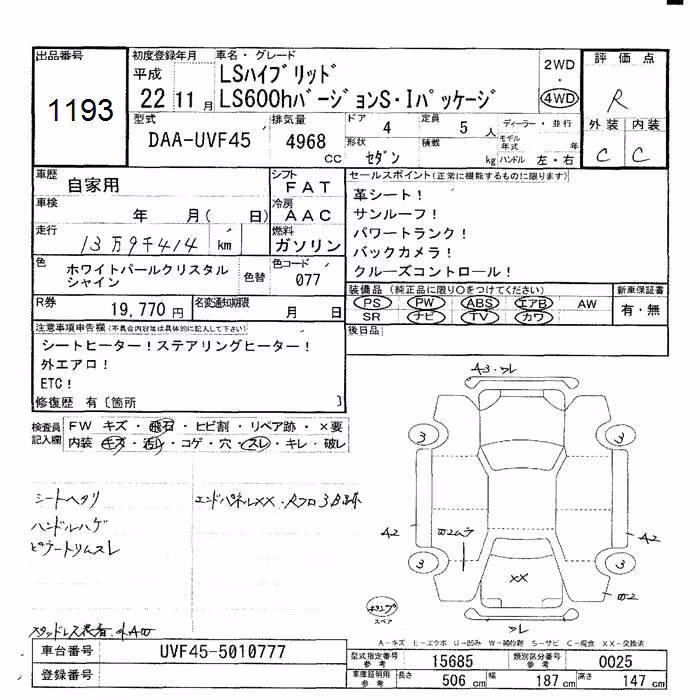 出品番号
1193
初度登録年月
平成
22 11 月
車名・グレード
LSハイブリッド
LS600hバージョンS・Iパッケージ
2WD
・
4WD
評価点
R
外装 内装
C C
型式
DAA-UVF45
排気量
4968
CC
ドア 4
定員 5 人
ディーラー・並行
モデル年式 年
形状
セダン
積載 kg
ハンドル 左・右
車歴
自家用
シフト
FAT
車検
年 月( 日)
冷房
AAC
走行
13万9千414 km
燃料
ガソリン
色
ホワイトパールクリスタル
シャイン
色替
色コード
077
R券
19,770 円
名変通知期限
月 日
セールスポイント(正常に機能するものに限ります)
革シート!
サンルーフ!
パワートランク!
バックカメラ!
クルーズコントロール!
装備品(純正品に限り○をつけてください)
PS PW ABS エアB AW
SR ナビ TV カワ
新車保証書
有・無
後日品
注意事項申告欄(不具合内容等は具体的に記入して下さい)
シートヒーター!ステアリングヒーター!
外エアロ!
ETC!
修復歴 有〔箇所 〕
検査員記入欄
FW キズ・飛石・ヒビ割・リペア跡・×要
内装・キズ・汚レ・コゲ・穴・スレ・キレ・破レ
シートヘタリ
ハンドルハゲ
エンドパネルXX・
A3・フレ
3
3
A2
A2
3
3
XX
W2
フレ
スペア
A-キズ E-エクボ U-凹み W-補修跡 S-サビ C-腐食 XX-交換済
車台番号
UVF45-5010777
登録番号
型式指定番号
参考
15685
類別区分番号
参考
0025
車庫証明用
参考
長さ 506 cm
幅 187 cm
高さ 147 cm